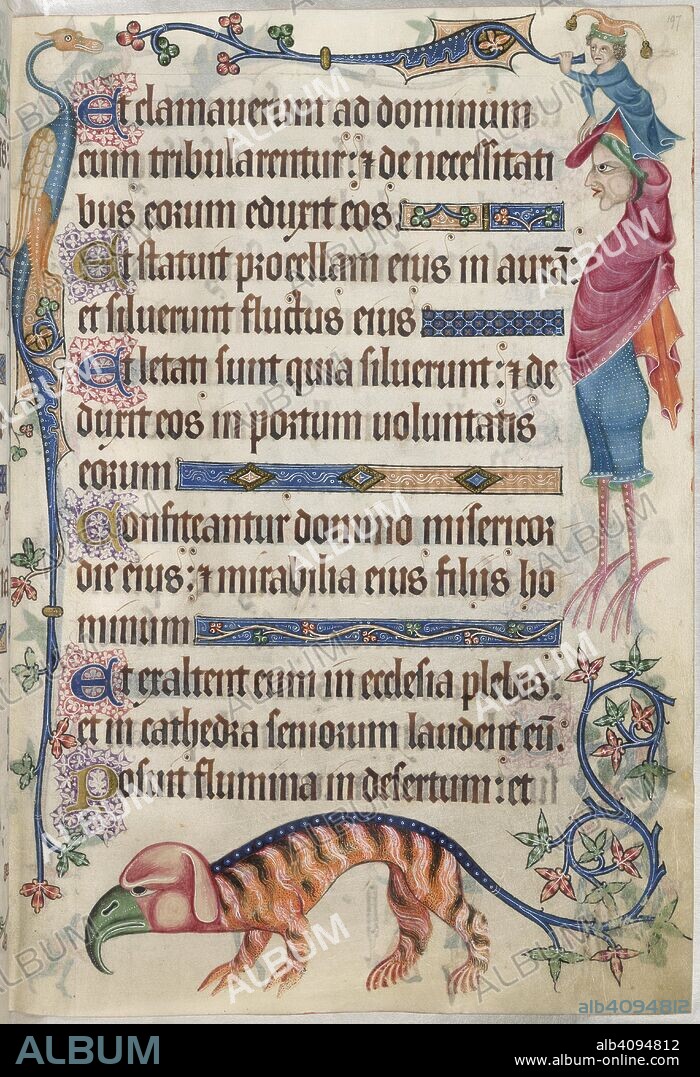 197
Et clamauerunt ad dominum
cum tribularentur: ⁊ de necessitati
bus eorum eduxit eos
Et statuit procellam eius in aurā:
et siluerunt fluctus eius
Et letati sunt quia siluerunt: ⁊ de
duxit eos in portum uoluntatis
eorum
Confiteantur domino misericor
die eius: ⁊ mirabilia eius filiis ho
minum
Et exaltent eum in ecclesia plebis:
et in cathedra seniorum laudent eū:
Posuit flumina in desertum: et
ALBUM
alb4094812
ALBUM
alb4094812
www.album-online.com